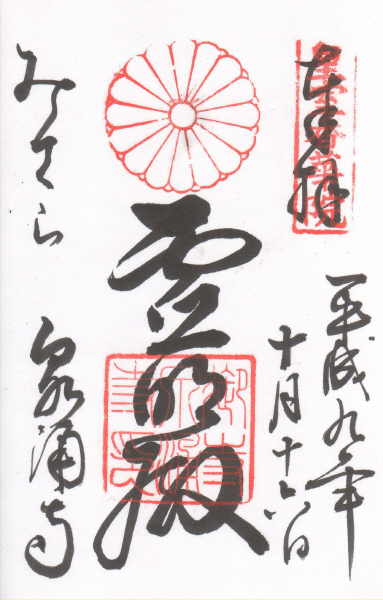 奉拝
平成九年
十月十六日
霊明殿
みてら 泉涌寺